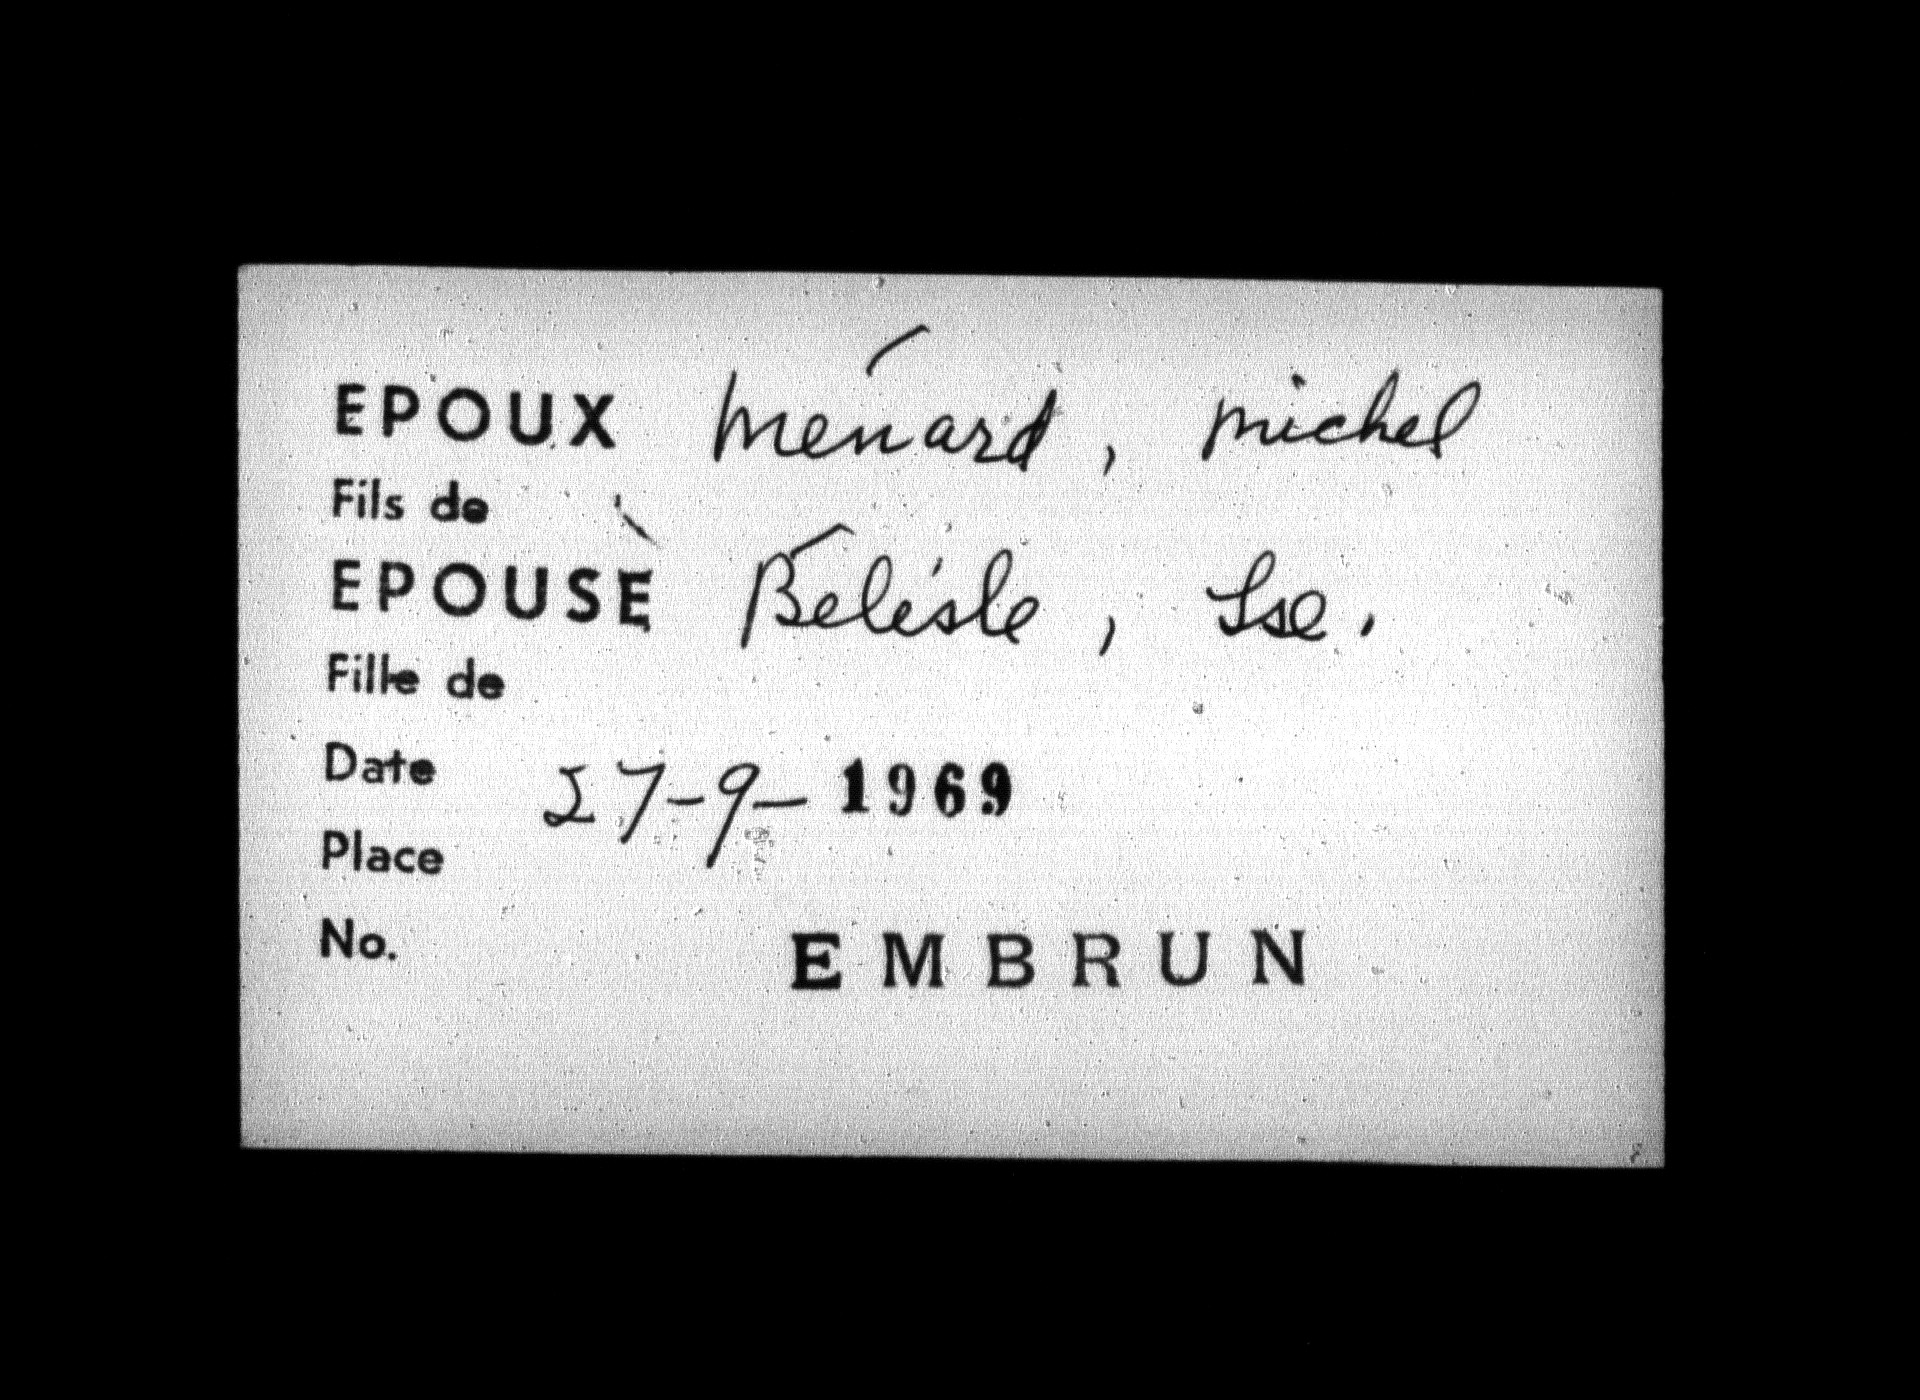 EPOUX Ménard, Michel
Fils de
EPOUSE Bélisle, Lse.
Fille de
Date 27-9-1969
Place
No. EMBRUN